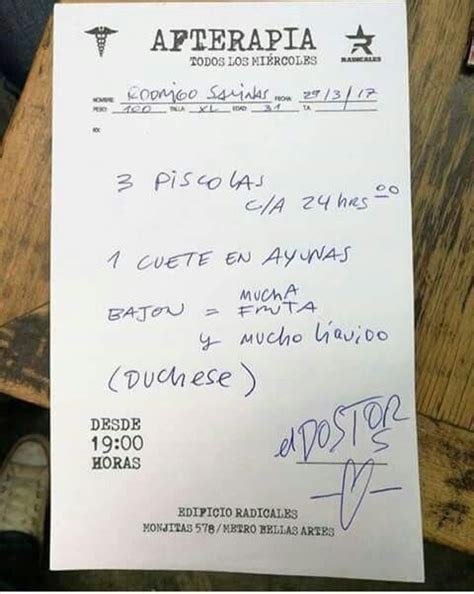 AFTERAPIA
TODOS LOS MIÉRCOLES
RADICALES
NOMBRE RODRIGO SALINAS FECHA 29/3/17
PESO: 100 TALLA XL EDAD 31 TA
RX:
3 PISCOLAS
C/A 24 HRS 00
1 CUETE EN AYUNAS
BAJON = MUCHA
FRUTA
y MUCHO LíQUIDO
(DUCHESE)
DESDE
19:00
HORAS
el DOSTOR
S
EDIFICIO RADICALES
MONJITAS 578/METRO BELLAS ARTES